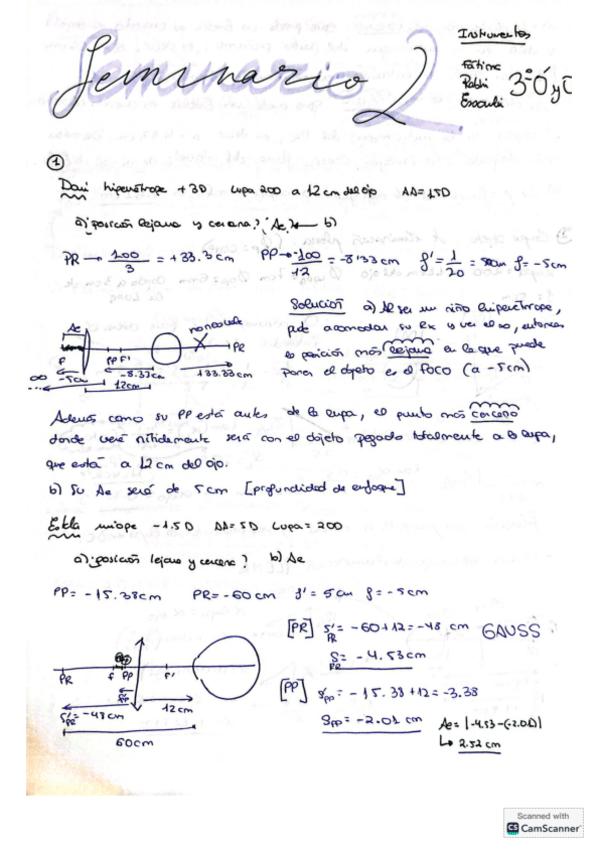 Seminario 2
Instrumentos
Fátima
Pablo
3º Ó y O
①
Dani hipermétrope +3D lupa 200 12 cm del ojo AA=15D
a) ¿posición lejana y cercana? ¿Ae? b)
PR → 100/3 = +33.3 cm PP → -100/12 = -8'33 cm f' = 1/20 = 5cm f = -5cm
Solución a) Al ser un niño hipermétrope,
puede acomodar su Rx y ver el ∞, entonces
la posición más lejana en la que puede
poner el objeto es el foco (a -5cm)
Ae
no accede
F PP F' PR
∞ -5cm -8.33cm +33.33cm
12cm
Además como su PP está antes de la lupa, el punto más cercano
donde verá nítidamente será con el objeto pegado totalmente a la lupa,
que está a 12 cm del ojo.
b) Su Ae será de 5 cm [profundidad de enfoque]
miope -1.5D AA=5D lupa=200
a) ¿posición lejana y cercana? b) Ae
PP = -15.38cm PR = -60cm f' = 5cm f = -5cm
[PR] s'PR = -60+12 = -48 cm GAUSS
SPR = -4.53cm
[PP] s'PP = -15.38+12 = -3.38
SPP = -2.01 cm Ae = |-4.53-(-2.01)|
↳ 2.52 cm
PR f PP F'
s'PR = -48cm s'PP 12cm
60cm
Scanned with
CS CamScanner